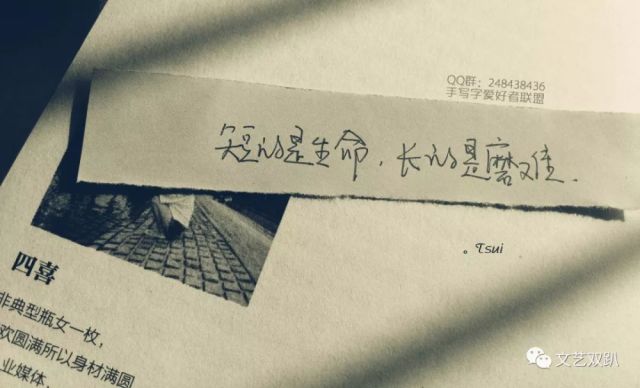 QQ群：248438436
手写字爱好者联盟
短的是生命，长的是磨难.
。Tsui
四喜
非典型瓶女一枚，
欢圆满所以身材满圆
业媒体，
文艺双趴